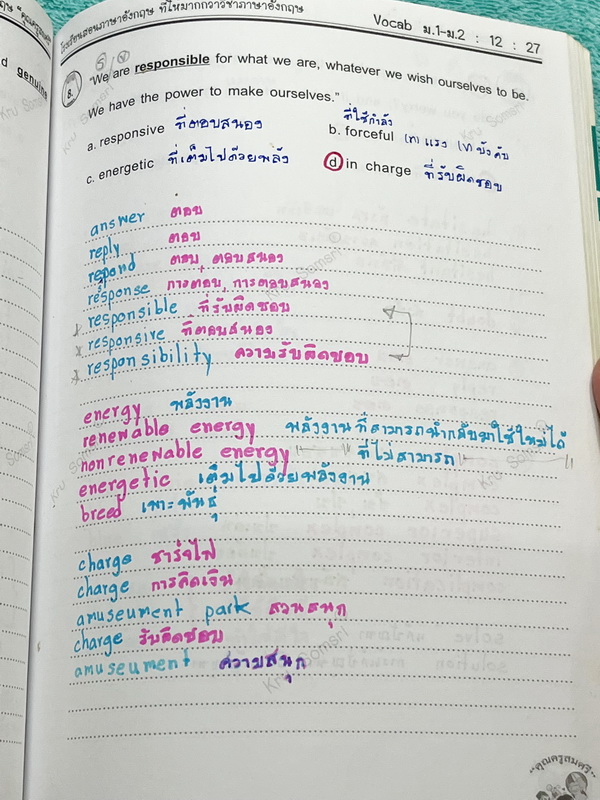 โรงเรียนสอนภาษาอังกฤษ ที่ให้มากกว่าวิชาภาษาอังกฤษ
Vocab ม.1-ม.2 : 12 : 27
genuine
8. "We are responsible for what we are, whatever we wish ourselves to be.
We have the power to make ourselves."
a. responsive ที่ตอบสนอง
b. forceful ที่ใช้กำลัง (n) แรง (v) บังคับ
c. energetic ที่เต็มไปด้วยพลัง
d in charge ที่รับผิดชอบ
answer ตอบ
reply ตอบ
repond ตอบ, ตอบสนอง
response การตอบ, การตอบสนอง
responsible ที่รับผิดชอบ
responsive ที่ตอบสนอง
responsibility ความรับผิดชอบ
energy พลังงาน
renewable energy พลังงานที่สามารถนำกลับมาใช้ใหม่ได้
nonrenewable energy " " ที่ไม่สามารถ " "
energetic เต็มไปด้วยพลังงาน
breed เพาะพันธุ์
charge ชาร์จไฟ
charge การคิดเงิน
amuseument park สวนสนุก
charge รับผิดชอบ
amuseument ความสนุก
Kru Somsri
"คุณครูสมศรี"